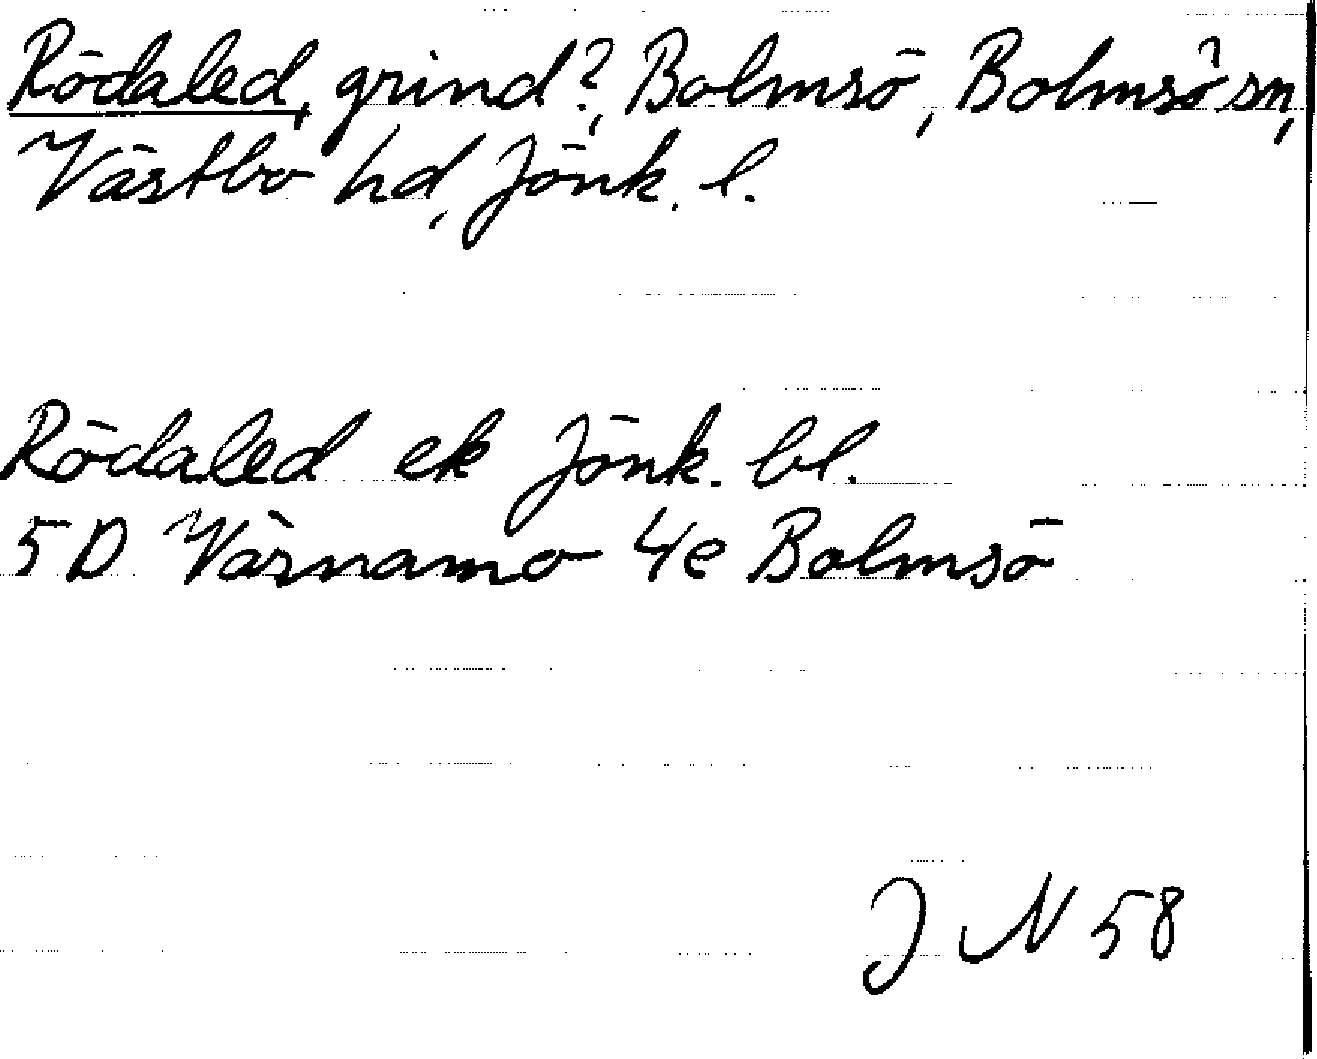 Rödaled, grind?, Bolmsö, Bolmsö sn,
Västbo hd, Jönk. l.
Rödaled ek Jönk. bl.
5D Värnamo 4e Bolmsö
J N 58